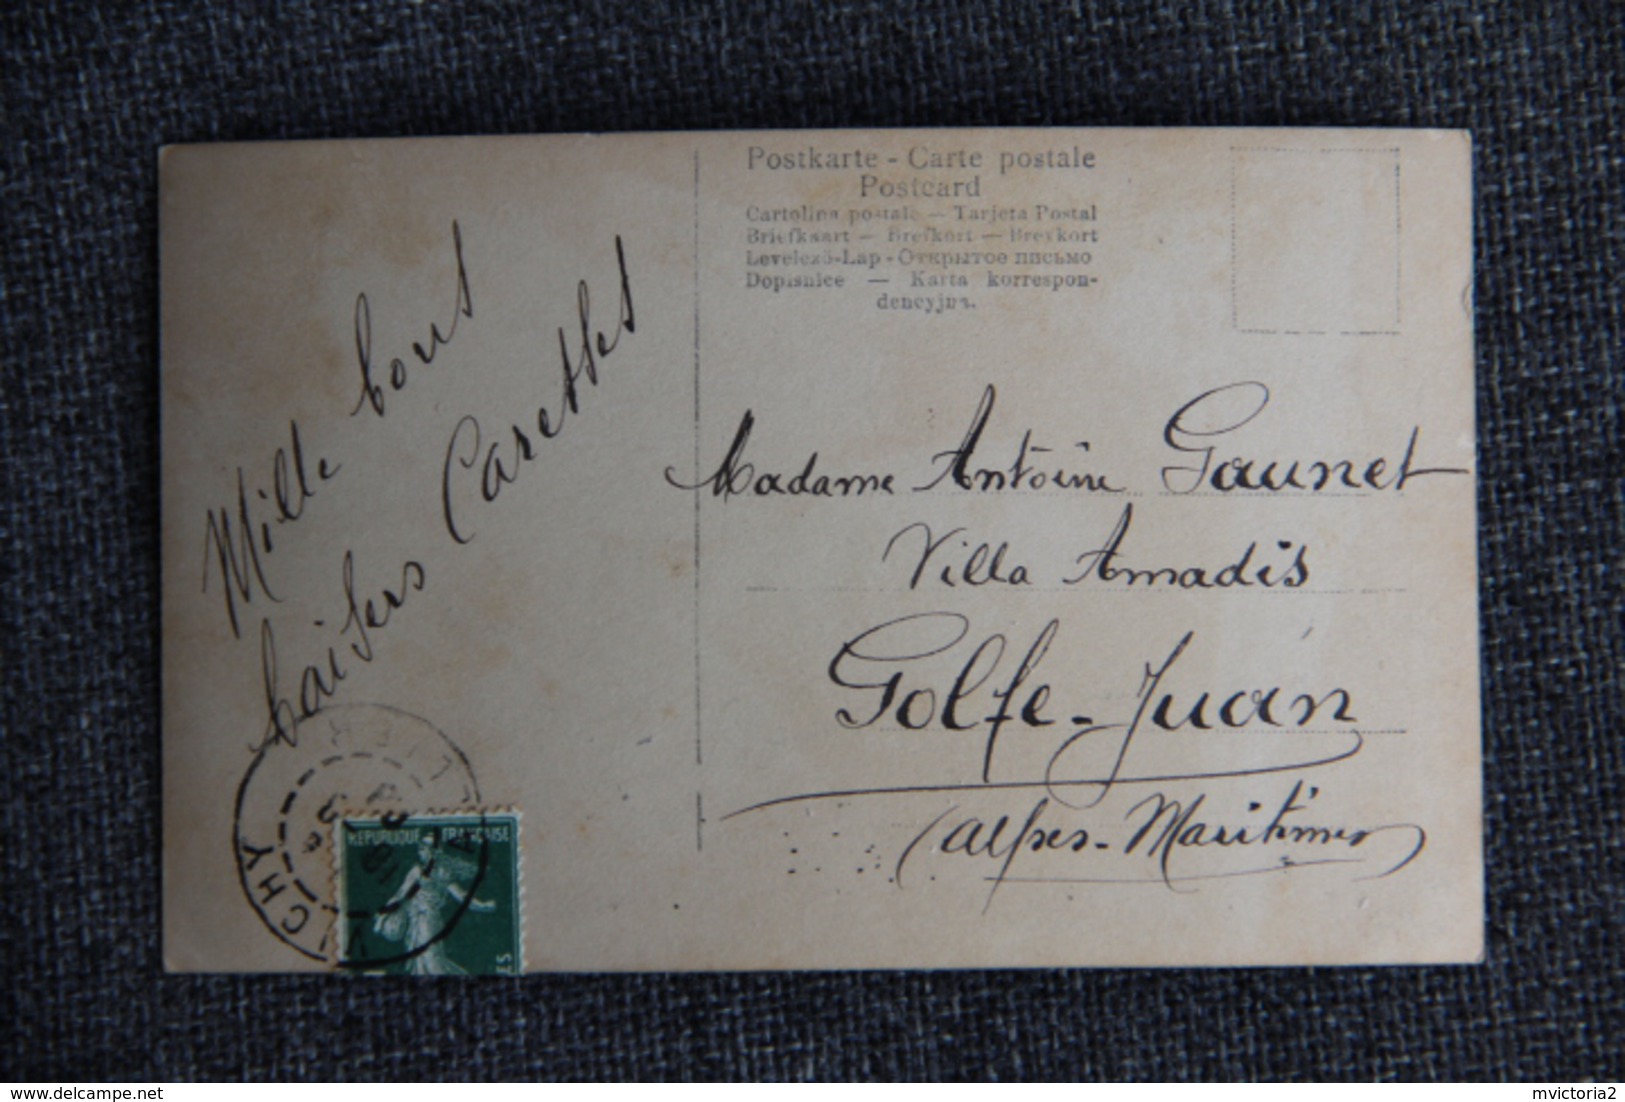 Postkarte - Carte postale
Postcard
Cartolina postale — Tarjeta Postal
Briefkaart — Brefkort — Brevkort
Levelező-Lap - Открытое письмо
Dopisnice — Karta korrespon-
dencyjna.
Mille bons
baisers Carettes
Madame Antoine Gaunet
Villa Amadis
Golfe-Juan
(Alpes-Maritimes)
REPUBLIQUE FRANÇAISE
VICHY
ALLIER
delcampe.net
mvictoria2